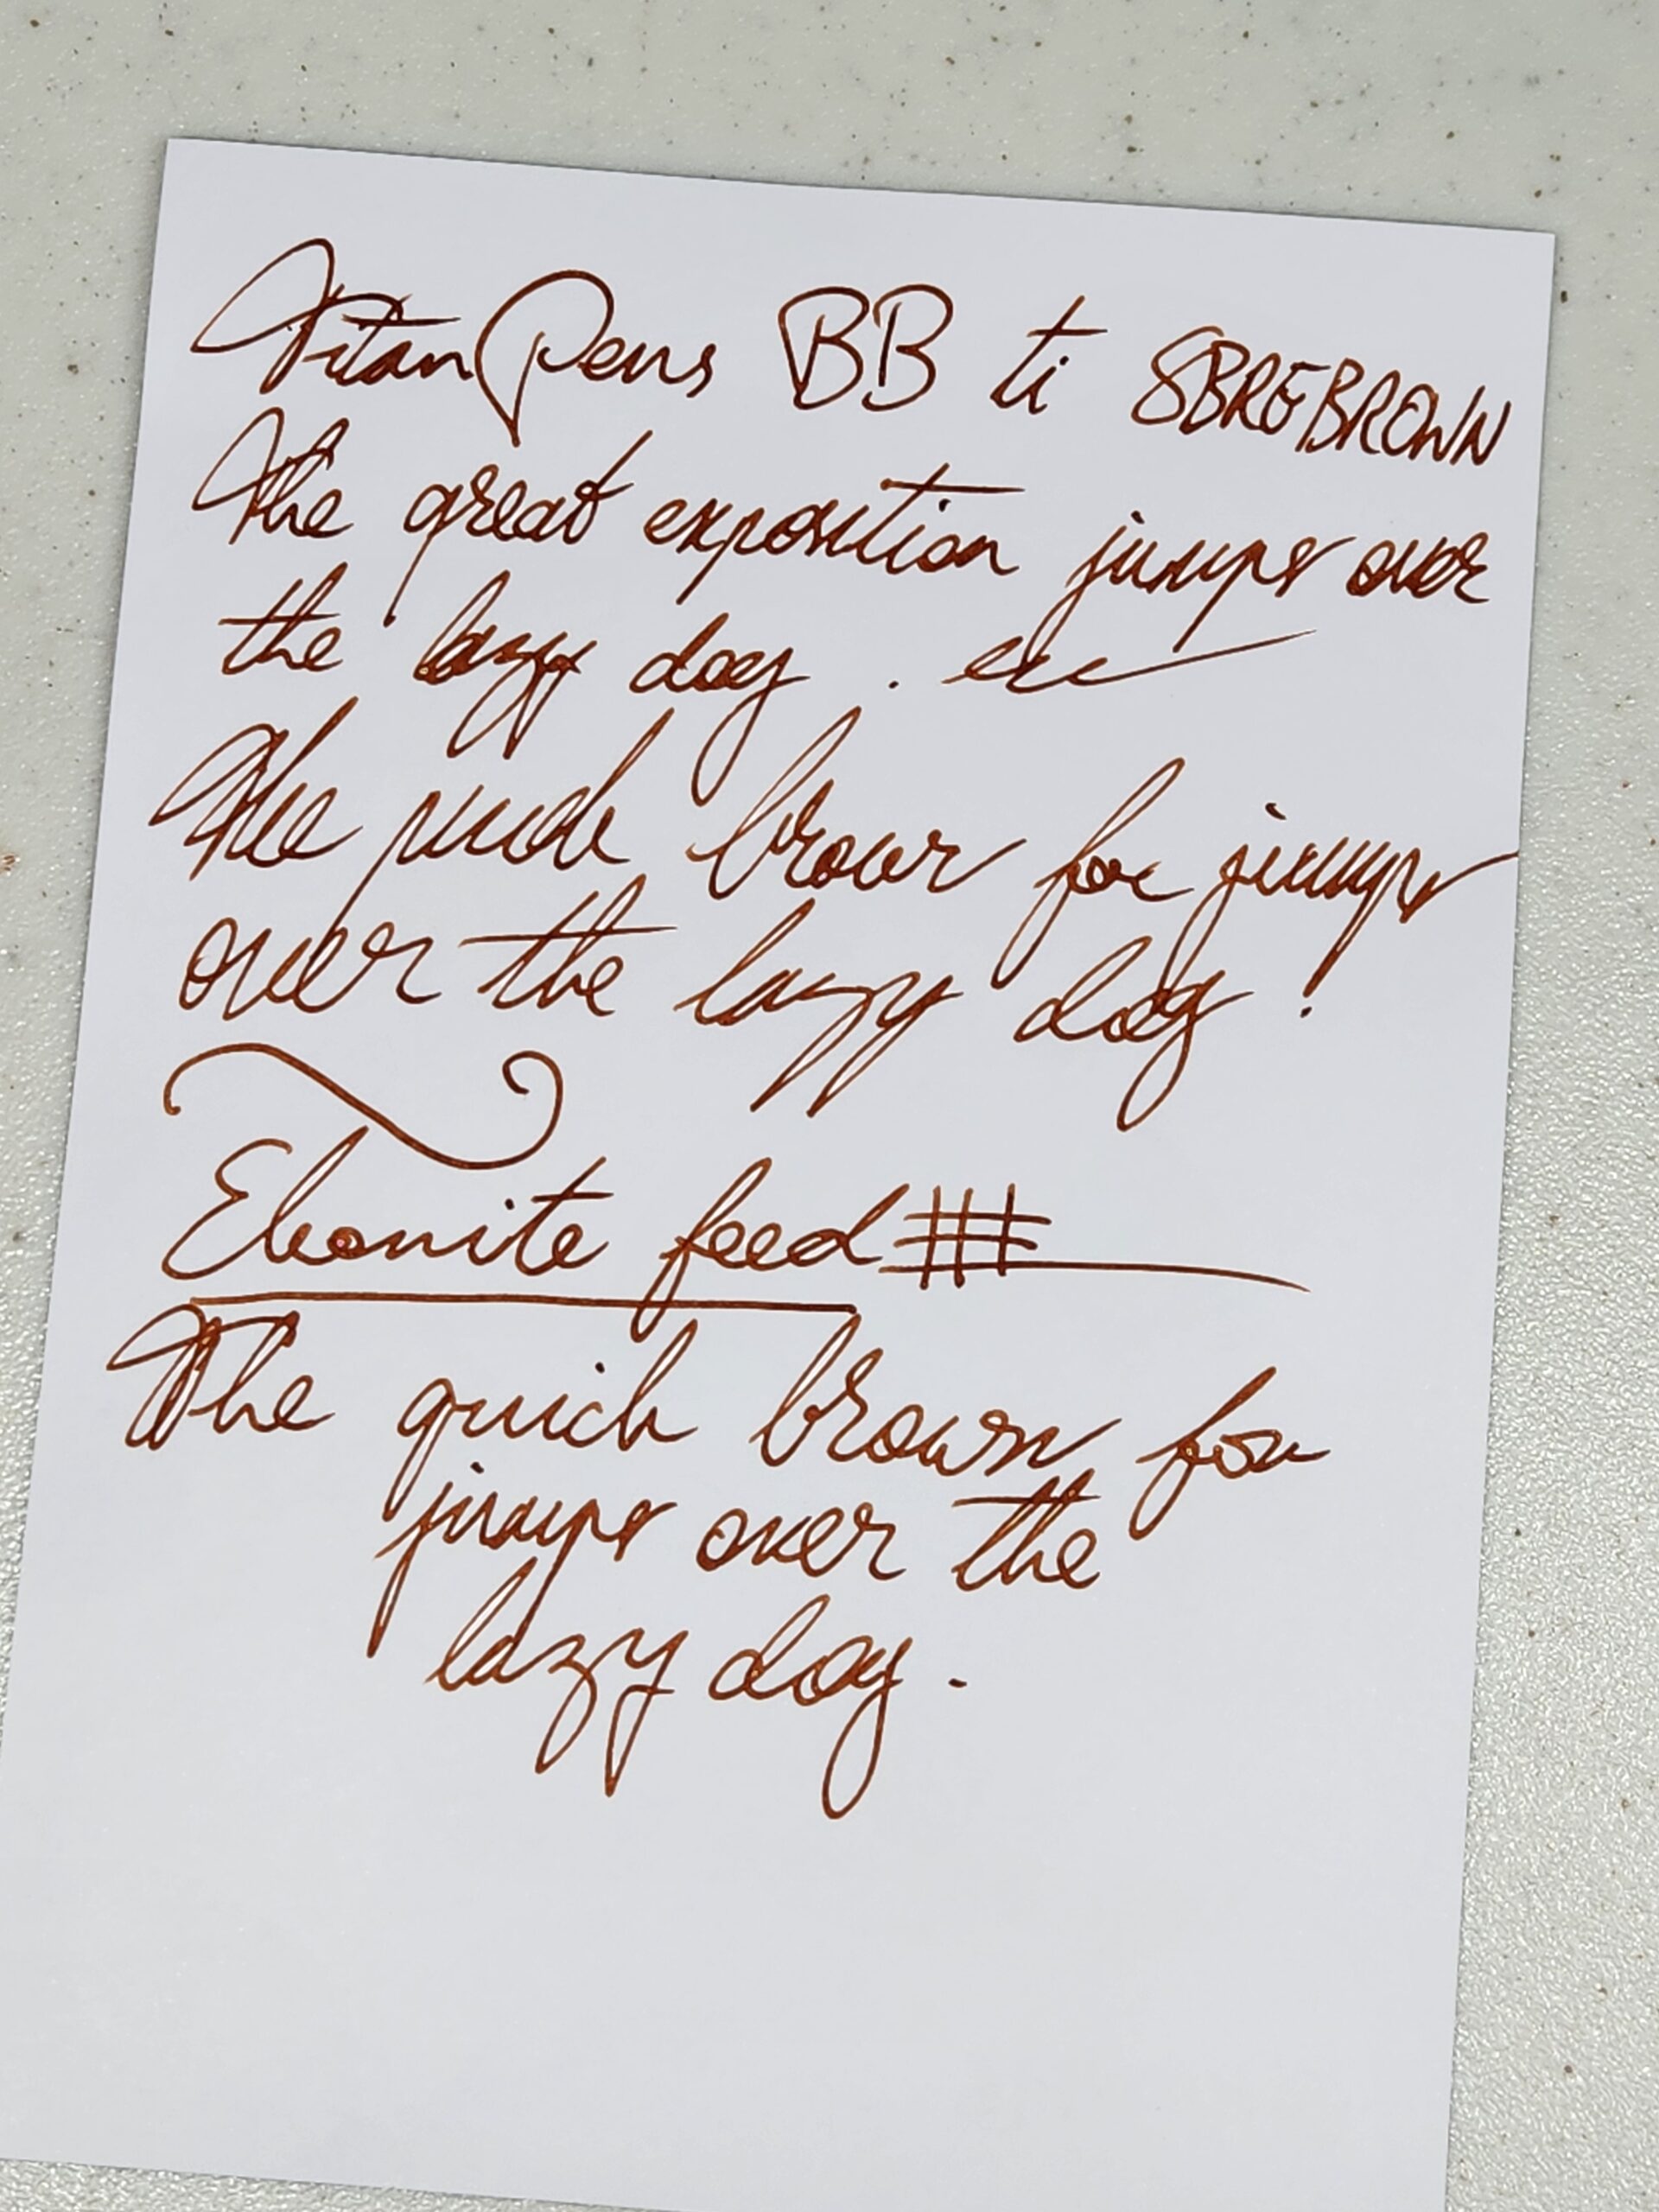 Titan Pens BB ti SBREBROWN
The great exposition jumps over
the lazy dog.
The quick brown fox jumps
over the lazy dog!
Ebonite feed
The quick brown fox
jumps over the
lazy dog.